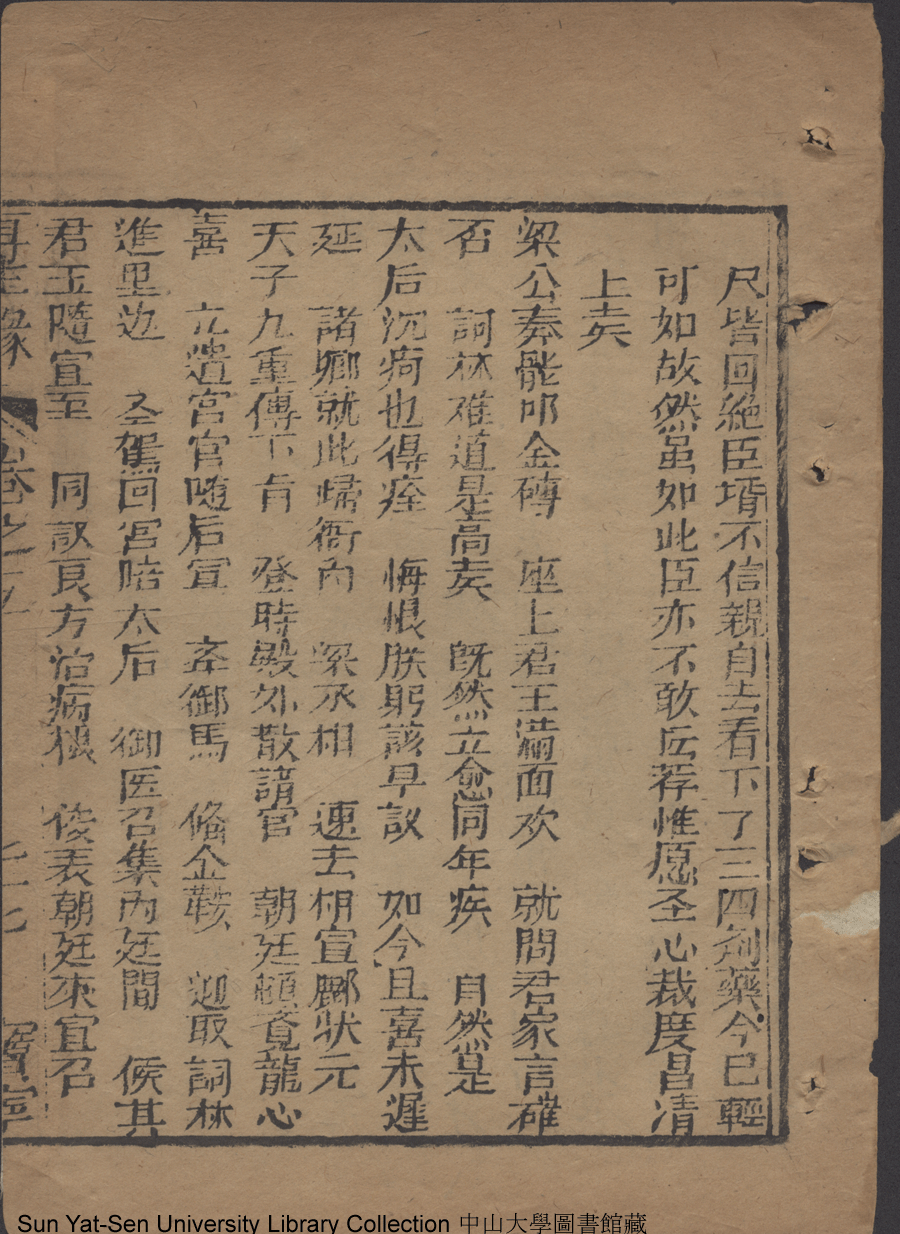 尺皆回絶臣壻不信親自去看下了三四剂藥今已輕
可如故然虽如此臣亦不敢㕥荐惟愿圣心裁度昌凊
上奏
梁公奏罷叩金磚　座上君王滿面欢　就問君家言確
否　詞林难道是高奏　既然立愈同年疾　自然是
太后沉疴也得痊　悔恨朕躬該早議　如今且喜未遲
延　諸卿就此帰衙內　梁丞相　速去相宣酈状元
天子九重傳下肯　登時殿外散請官　朝廷頓覚龍心
喜　立遣宮官随后宣　牵御馬　俻金鞍　迎取詞林
進里边　圣駕回宮陪太后　御医召集內廷間　候其
君玉隨宣至　同訍良方治病根　俊表朝廷來宣召
再生緣　卷之　五
Sun Yat-Sen University Library Collection 中山大學圖書館藏